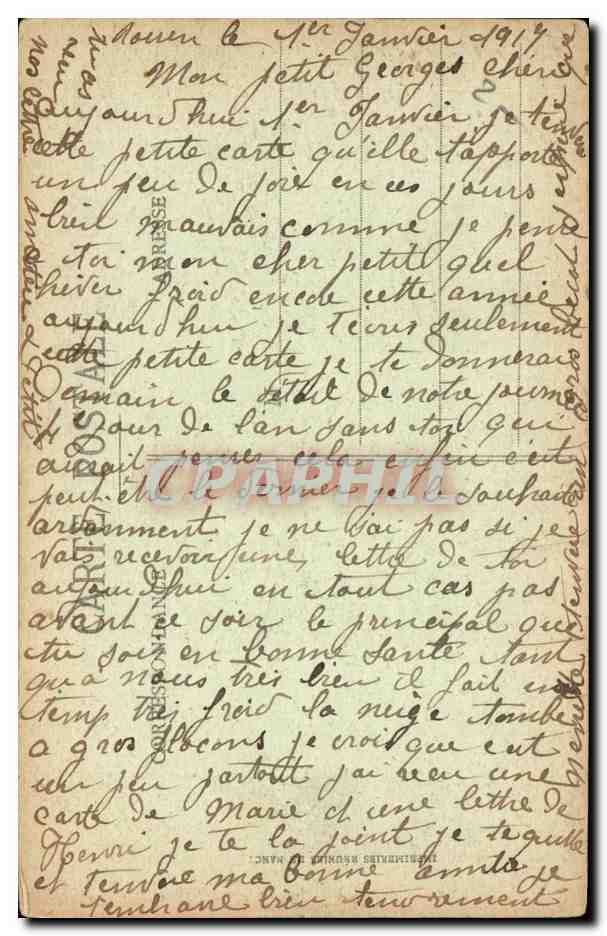 Rouen le 1er Janvier 1917
Mon petit Georges cheri
aujourdhui 1er Janvier je tenvoie
cette petite carte qu'elle t'apporte
un peu de joie en ces jours
bien mauvais comme je pense
a toi mon cher petit quel
hiver froid encore cette année
aujourdhui je tecris seulement
cette petite carte je te donnerai
demain le détail de notre journée
4 jour de l'an sans toi qui
aurait penser cela enfin c'est
peut-être le dernier je le souhaite
ardemment je ne sai pas si je
vais recevoir une lettre de toi
aujourdhui en tout cas pas
avant ce soir le principal que
tu sois en bonne santé tant
qu'a nous très bien il fait un
temp très froid la neige tombe
a gros flocons je crois que c'est
un peu partout j'ai reçu une
carte de Marie et une lettre de
Henri je te la joint je te quitte
et tenvoie ma bonne amitié je
t'embrasse bien tendrement
tu as
reçu
nos lettres
gros
CARTE POSTALE
CORRESPONDANCE
ADRESSE
IMPRIMERIES REUNIES DE NANCY
CPAPHIL